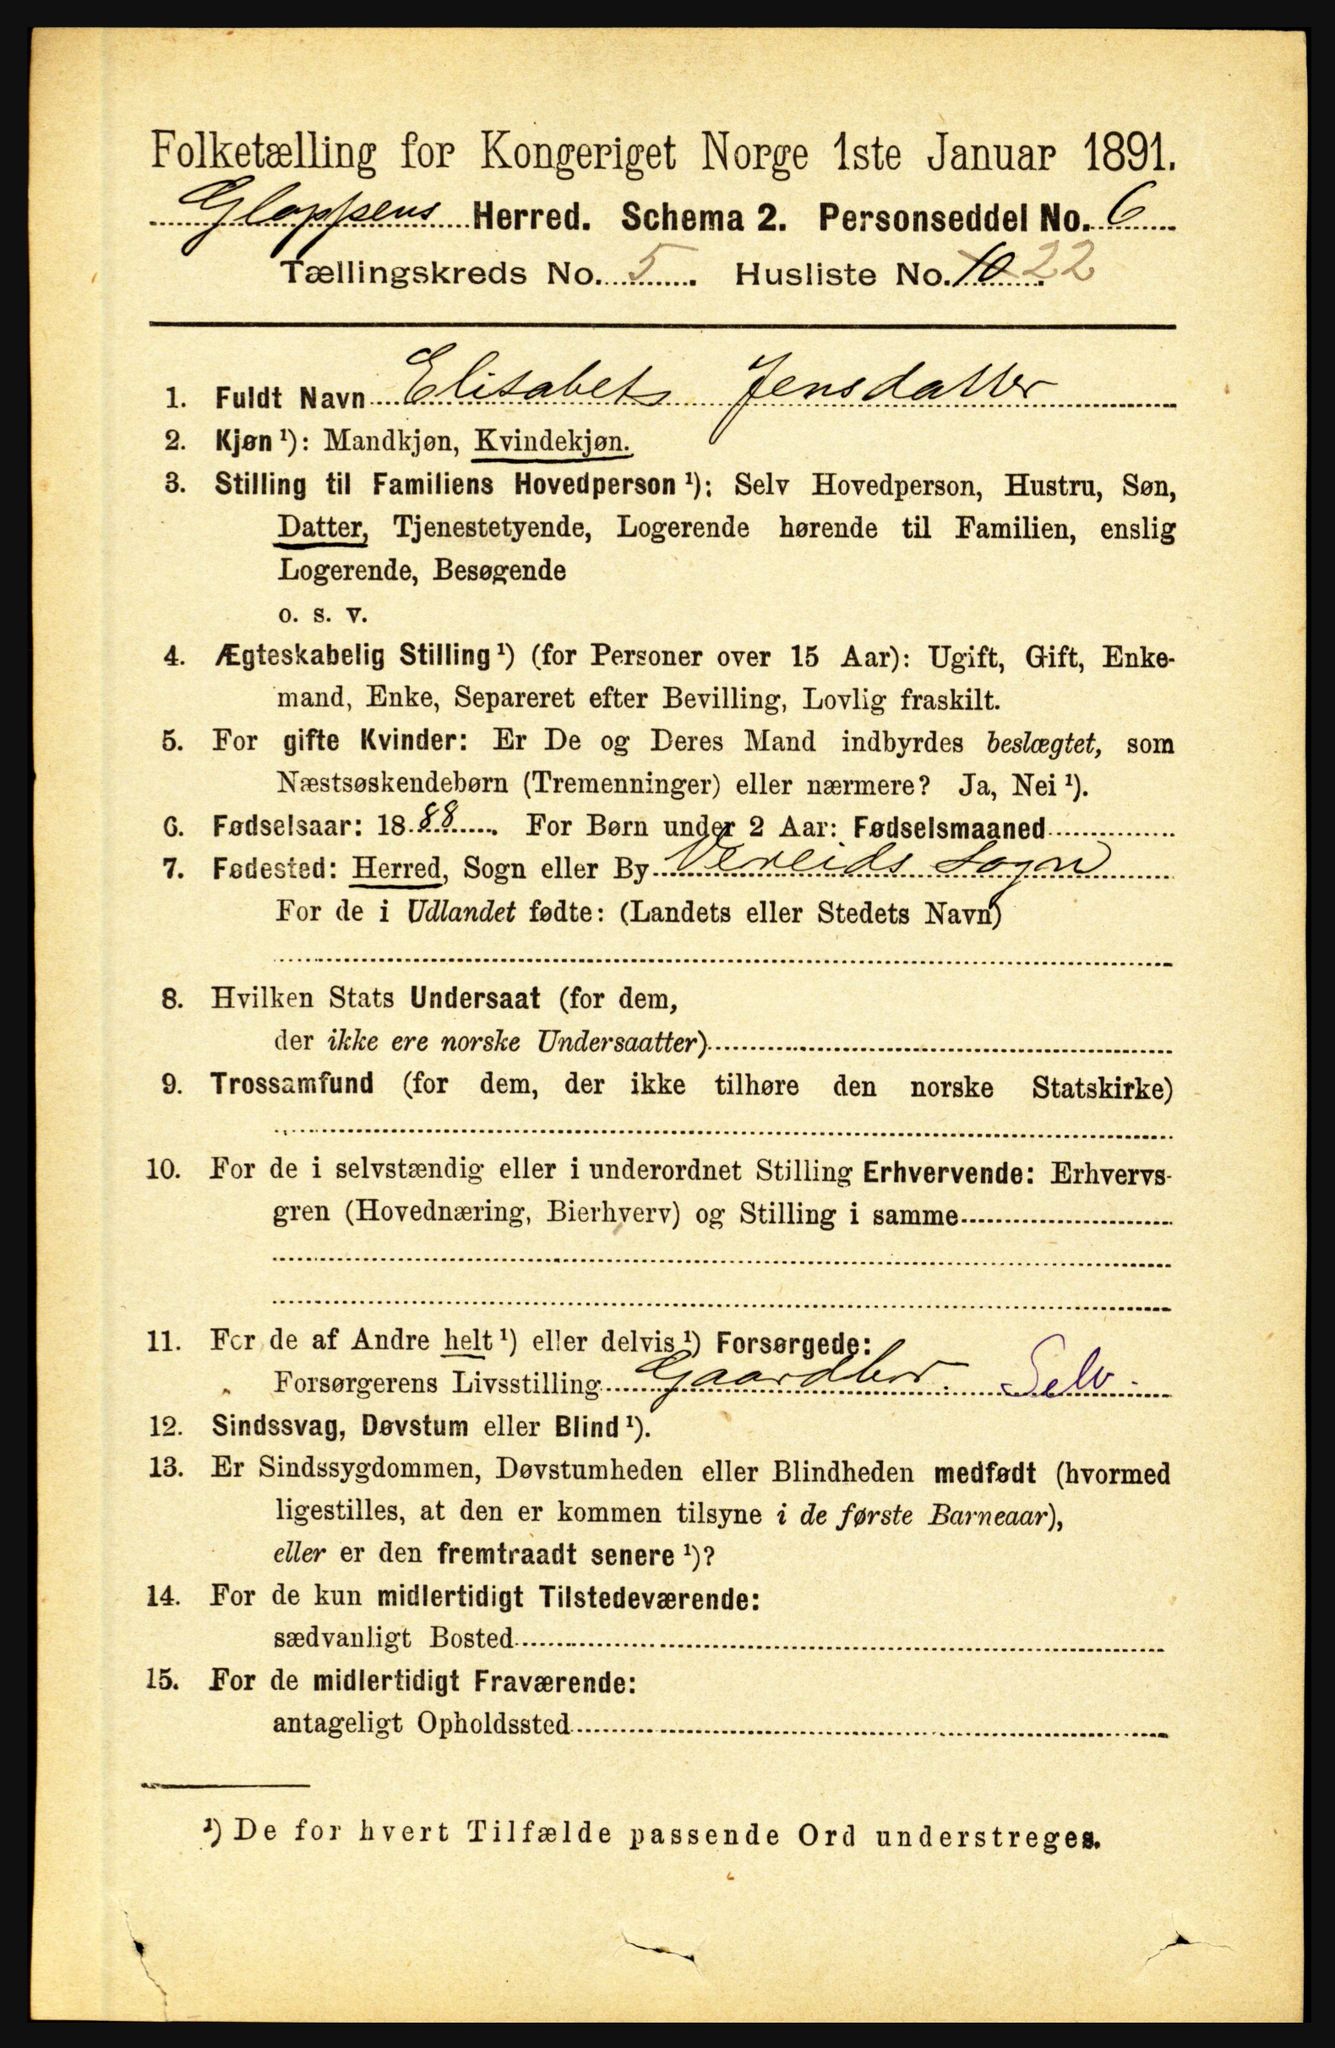 Folketælling for Kongeriget Norge 1ste Januar 1891.
Gloppens Herred. Schema 2. Personseddel No. 6
Tællingskreds No. 5. Husliste No. 10 22
1. Fuldt Navn Elisabet Jensdatter
2. Kjøn ¹): Mandkjøn, Kvindekjøn.
3. Stilling til Familiens Hovedperson ¹): Selv Hovedperson, Hustru, Søn,
Datter, Tjenestetyende, Logerende hørende til Familien, enslig
Logerende, Besøgende
o. s. v.
4. Ægteskabelig Stilling ¹) (for Personer over 15 Aar): Ugift, Gift, Enke-
mand, Enke, Separeret efter Bevilling, Lovlig fraskilt.
5. For gifte Kvinder: Er De og Deres Mand indbyrdes beslægtet, som
Næstsøskendebørn (Tremenninger) eller nærmere? Ja, Nei ¹).
6. Fødselsaar: 1888. For Børn under 2 Aar: Fødselsmaaned
7. Fødested: Herred, Sogn eller By Vereids Sogn
For de i Udlandet fødte: (Landets eller Stedets Navn)
8. Hvilken Stats Undersaat (for dem,
der ikke ere norske Undersaatter)
9. Trossamfund (for dem, der ikke tilhøre den norske Statskirke)
10. For de i selvstændig eller i underordnet Stilling Erhvervende: Erhvervs-
gren (Hovednæring, Bierhverv) og Stilling i samme
11. For de af Andre helt ¹) eller delvis ¹) Forsørgede:
Forsørgerens Livsstilling Gaardbr. Selv.
12. Sindssvag, Døvstum eller Blind ¹).
13. Er Sindssygdommen, Døvstumheden eller Blindheden medfødt (hvormed
ligestilles, at den er kommen tilsyne i de første Barneaar),
eller er den fremtraadt senere ¹)?
14. For de kun midlertidigt Tilstedeværende:
sædvanligt Bosted
15. For de midlertidigt Fraværende:
antageligt Opholdssted
¹) De for hvert Tilfælde passende Ord understreges.